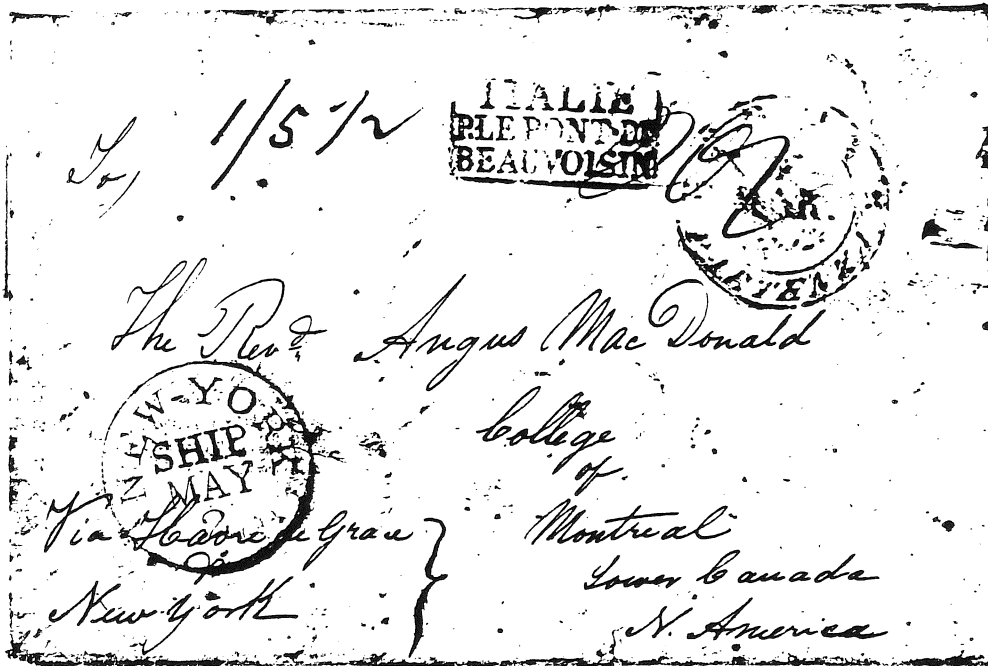 To,
1/5 1/2
ITALIE
P. LE PONT-DE
BEAUVOISIN
The Revd. Angus MacDonald
College
of
Montreal
Lower Canada
N. America
NEW-YORK
SHIP
MAY
Via Havre de Grace
&
New York